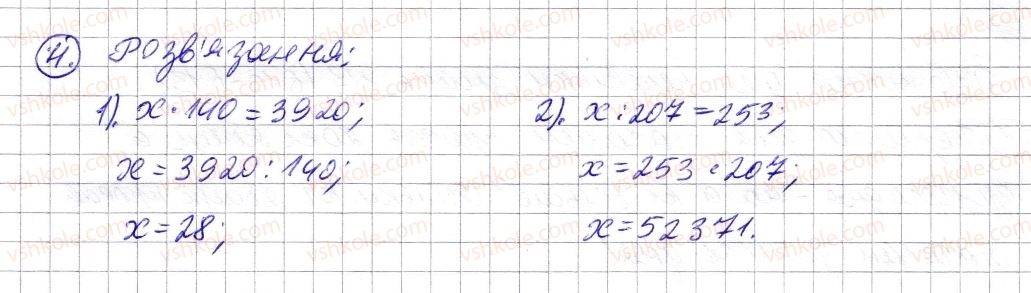 4. Розв'язання:
1). x · 140 = 3920;
x = 3920 : 140;
x = 28;
2). x : 207 = 253;
x = 253 · 207;
x = 52371.